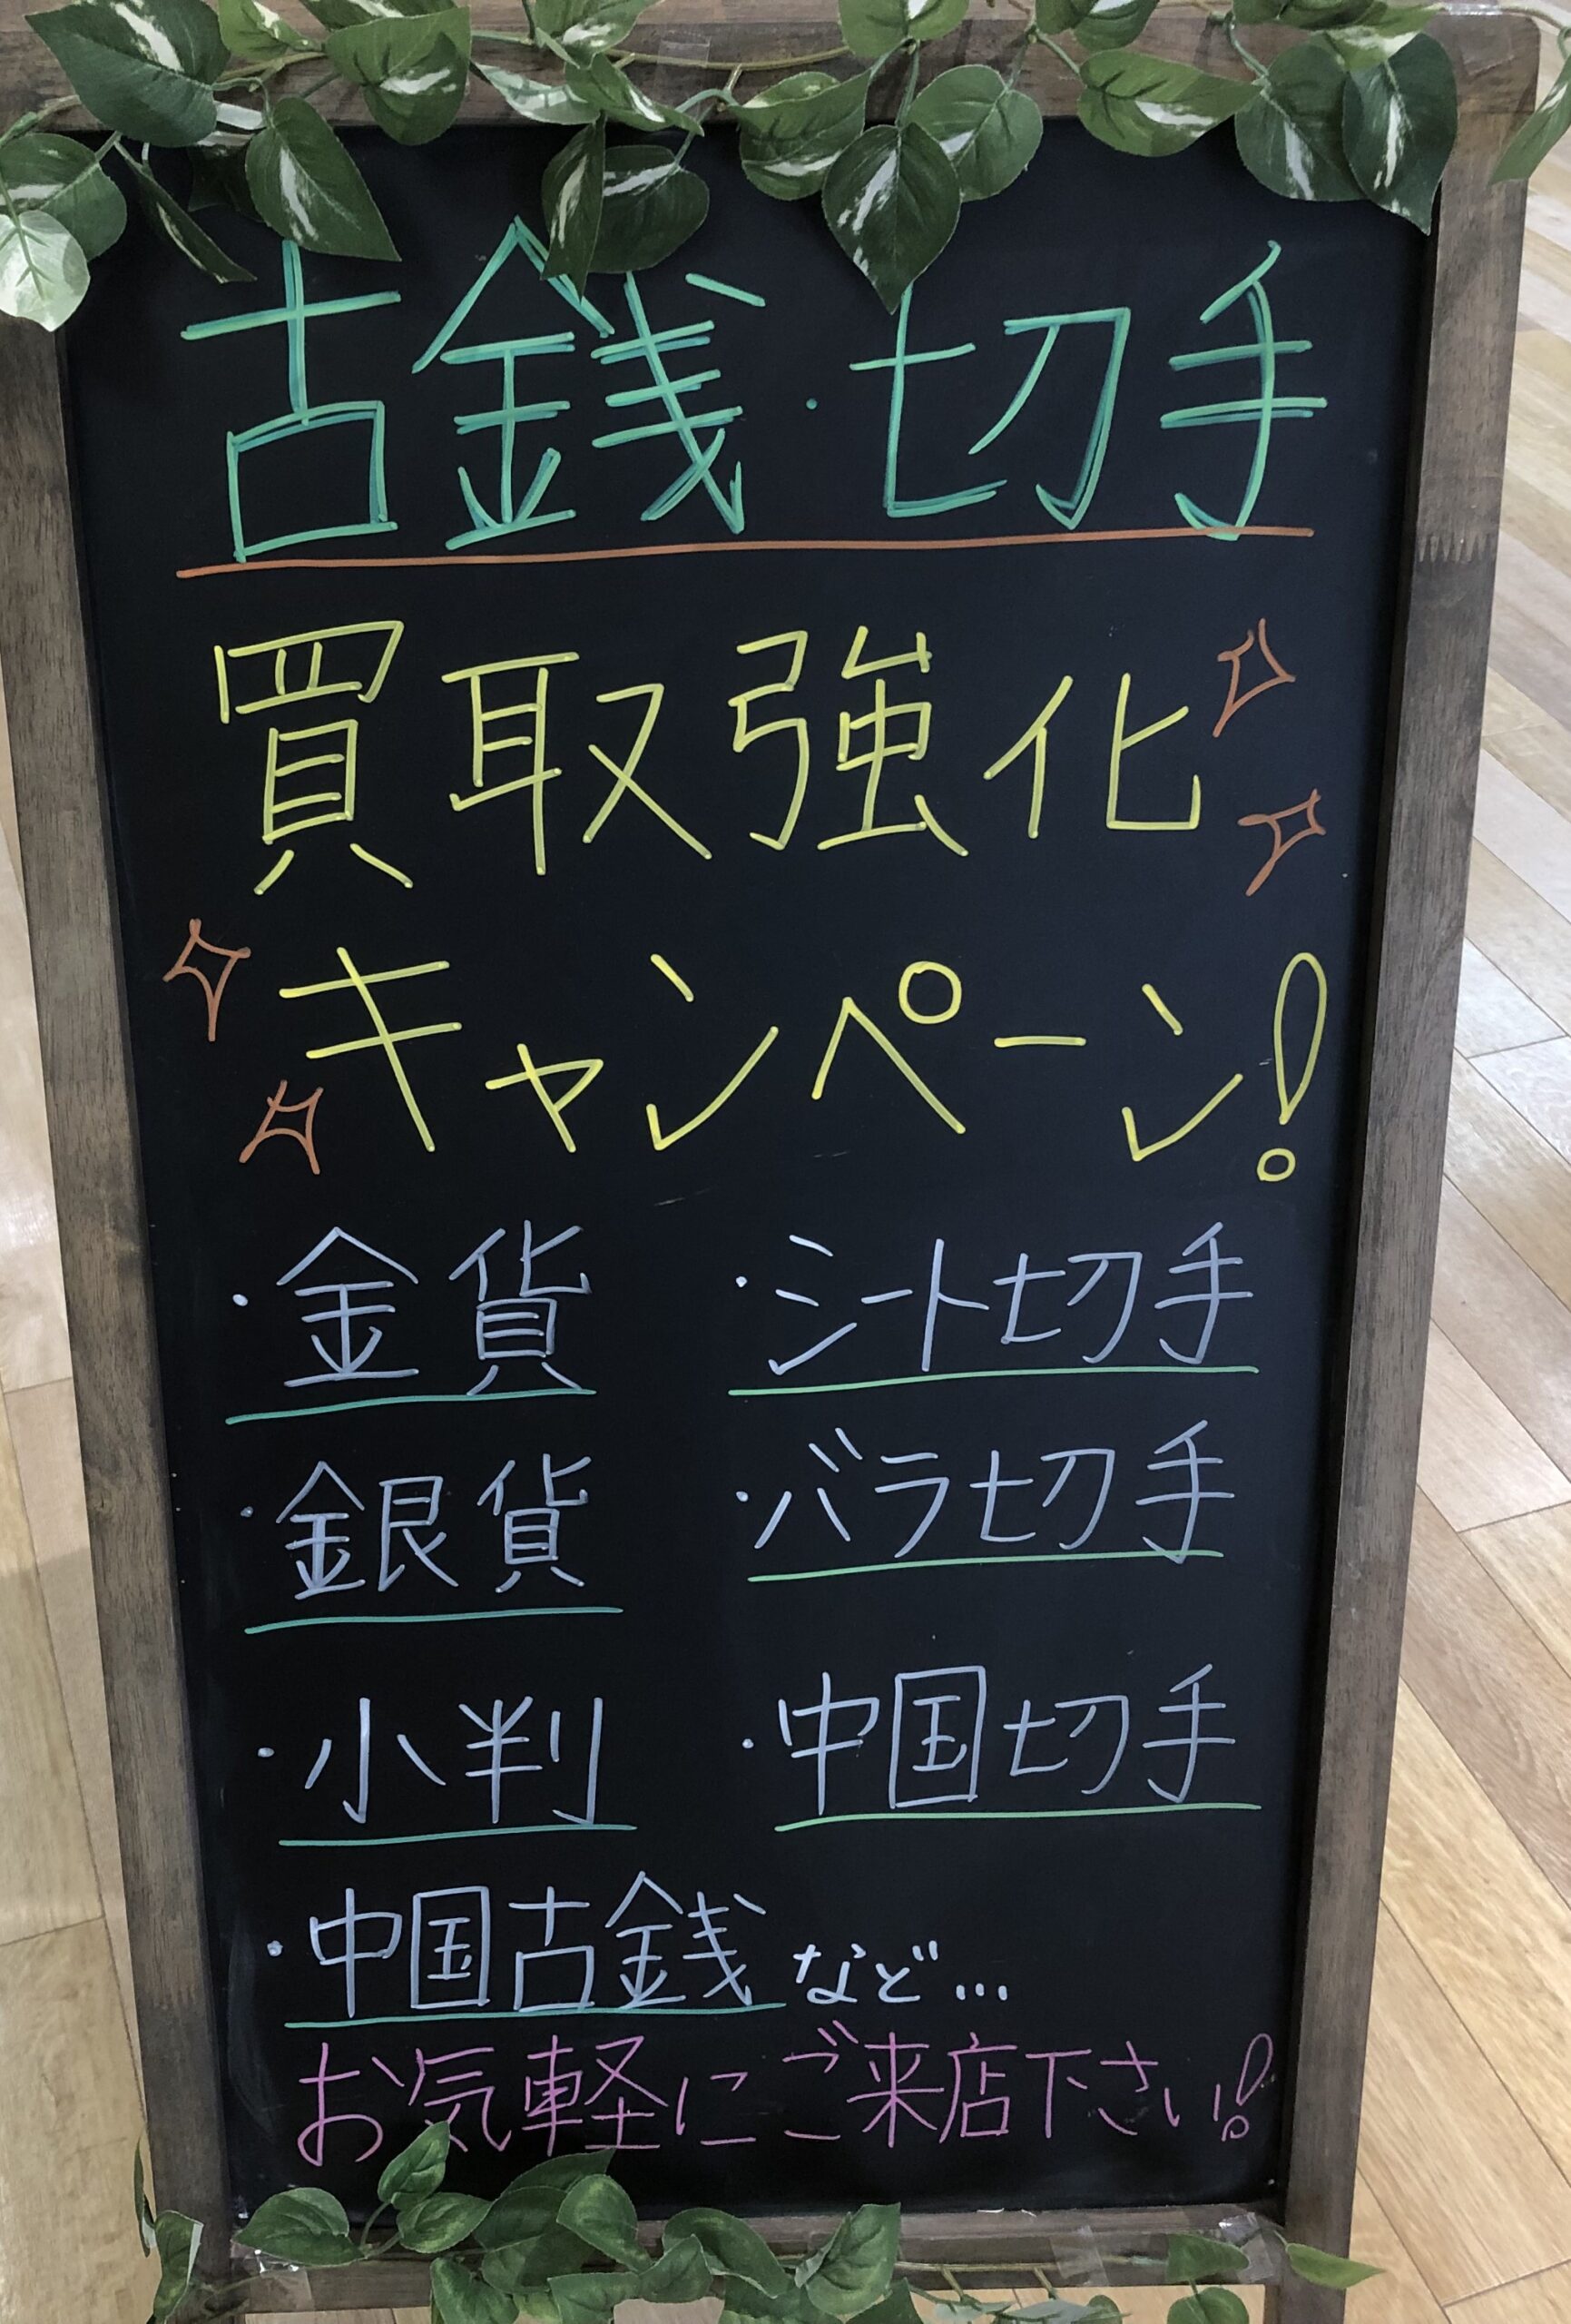 古銭・切手
買取強化
キャンペーン!
・金貨
・銀貨
・小判
・中国古銭 など…
・シート切手
・バラ切手
・中国切手
お気軽にご来店下さい!